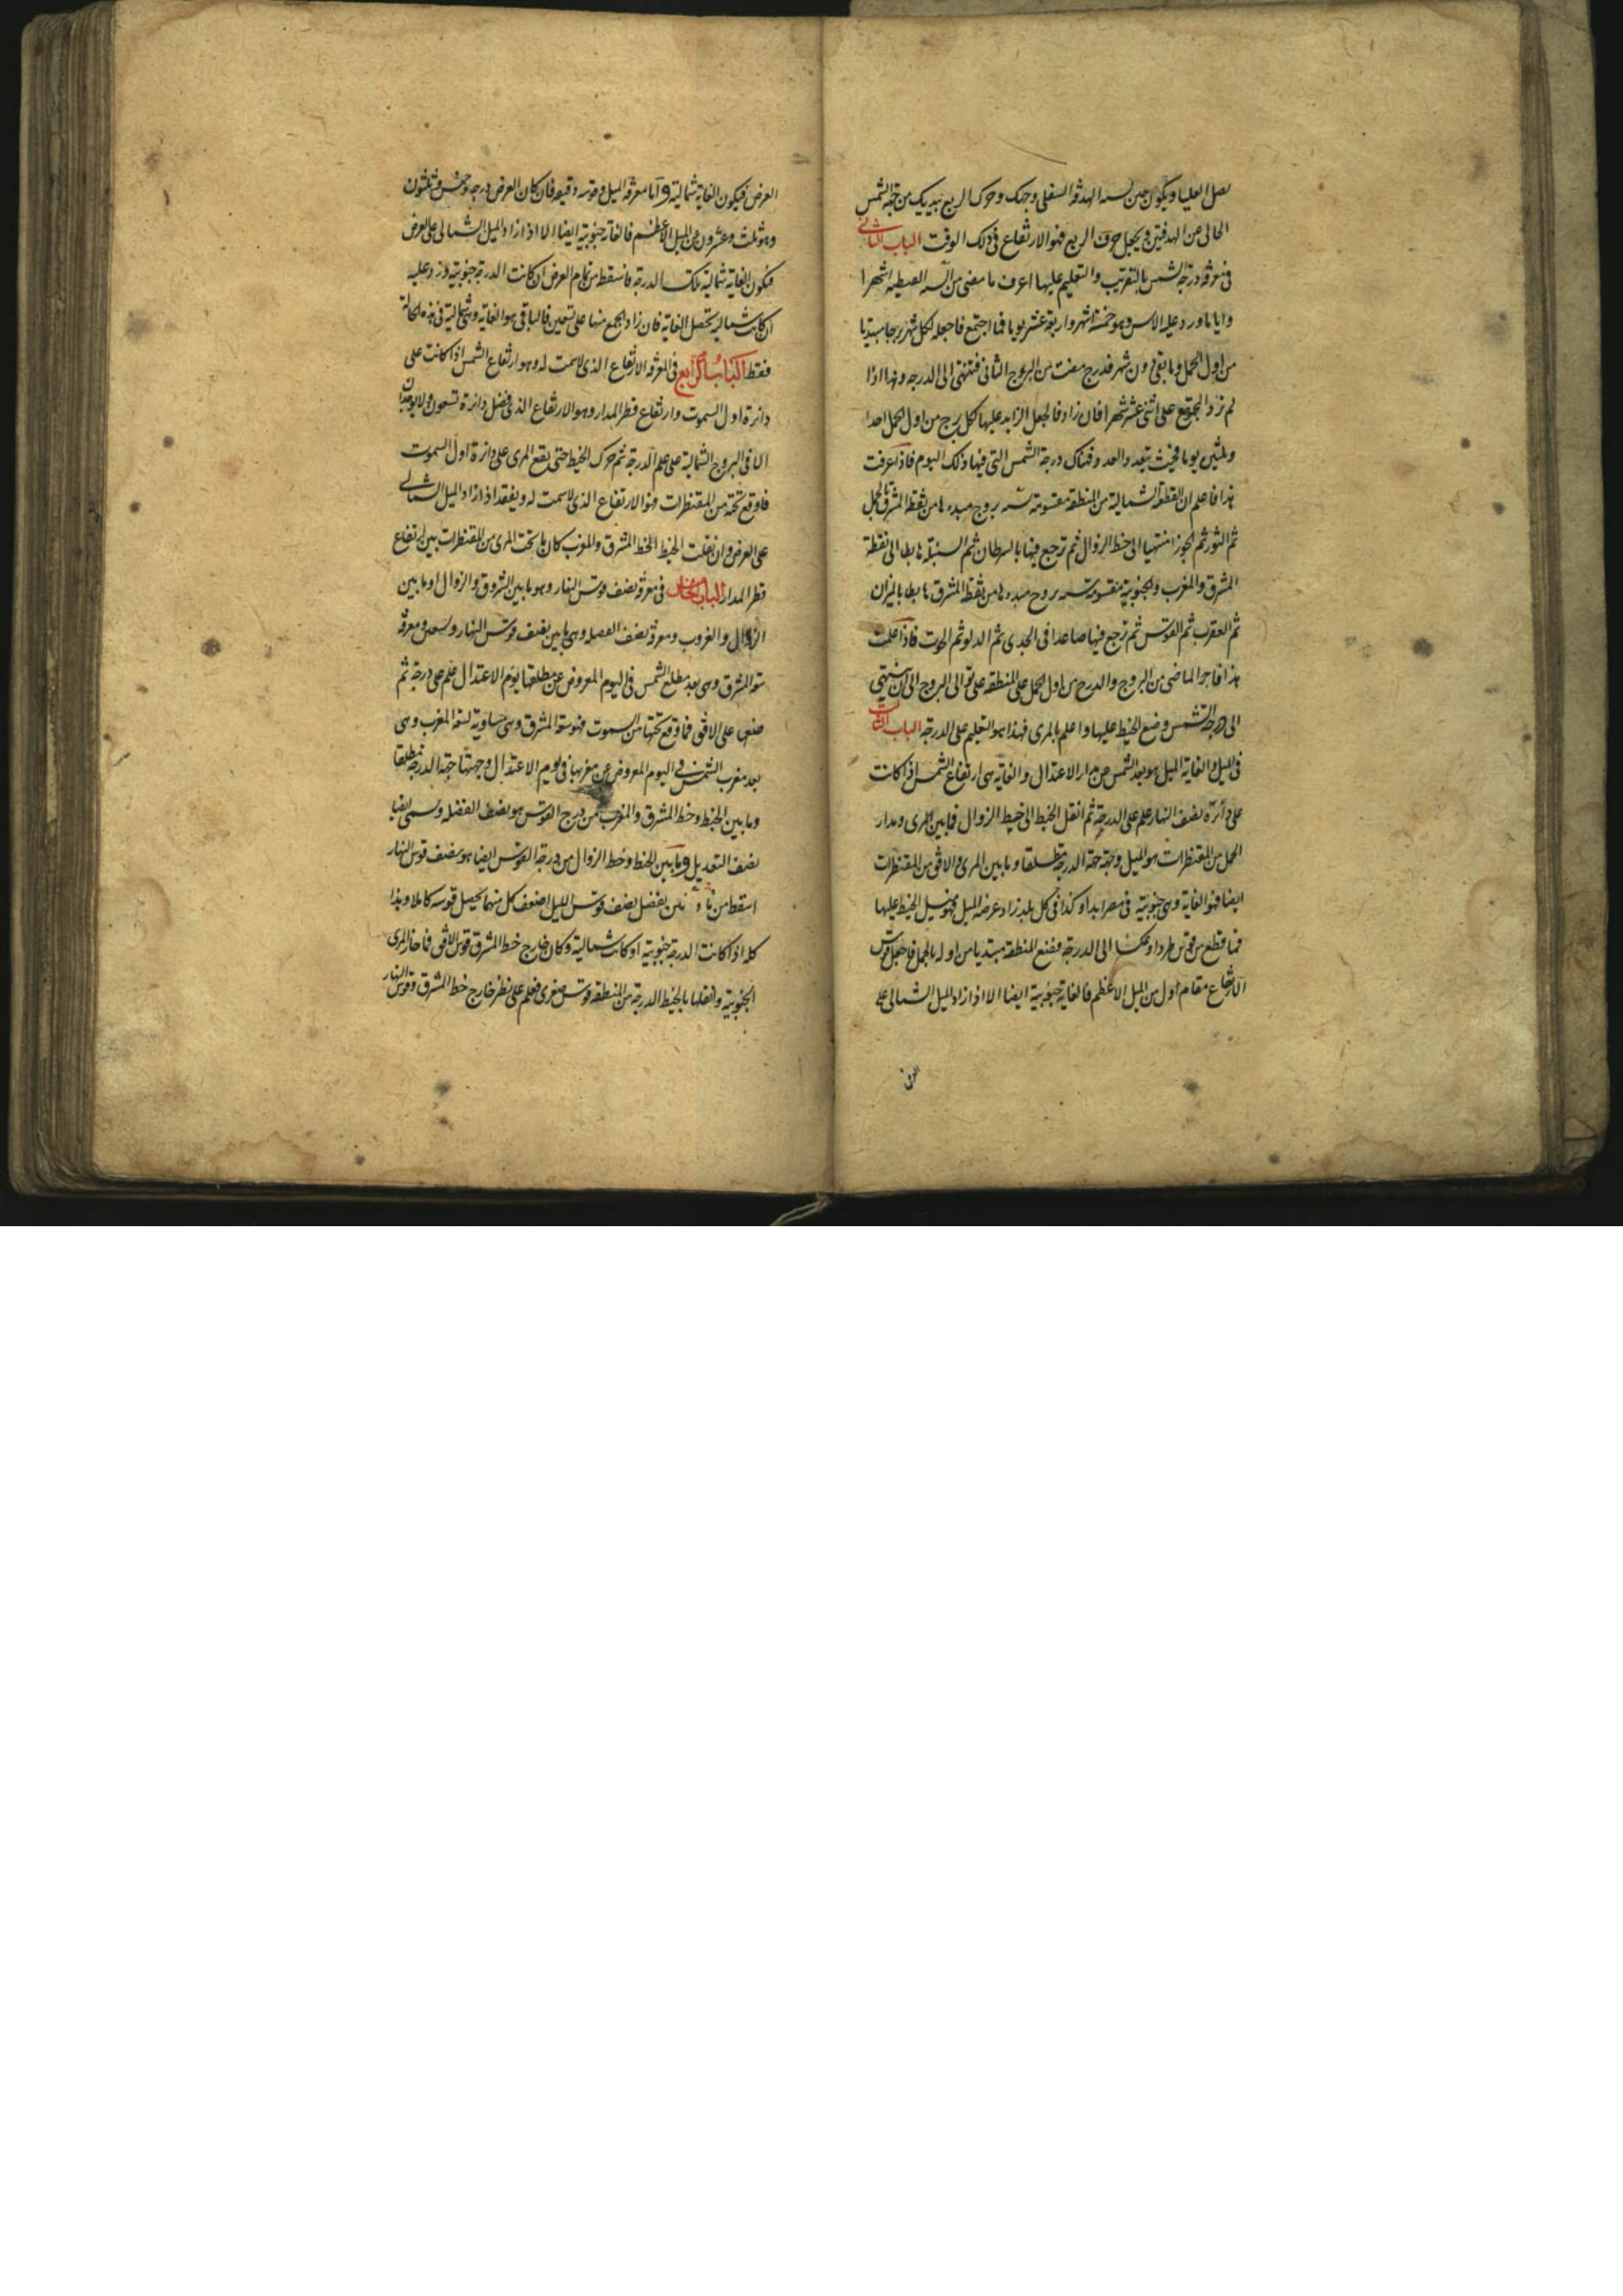 العليا ويكون حين الهدفة السفلى وجهك وحرك الربع بيديك من جهة الشمس
الخالى عن الهدفتين ويجعل حرف الربع فهو الارتفاع فى ذلك الوقت الباب الثانى
فى معرفة درجة الشمس بالتقريب والتعليم عليها اعرف ما مضى من السنة القبطية اشهرا
واياما وزد عليه الاس وهو خمسة اشهر واربعة عشر يوما فما اجتمع فاجعله لكل شهر برجا مبتديا
من اول الحمل وما بقى دون شهر فدرج مضت من البروج الثانى فتنتهى الى الدرجة وهذا اذا
لم يزد المجتمع على اثنى عشر شهرا فان زاد فاجعل الزايد عليها لكل برج من اول الحمل احدا
وثلثين يوما فحيث ينفد العدد فهناك درجة الشمس التى فيها ذلك اليوم فاذا عرفت
هذا فاعلم ان القطعة الشمالية من المنطقة مقسومة ستة بروج مبدءها من نقطة المشرق بالحمل
ثم الثور ثم الجوزا منتهيا الى خط الزوال ثم ترجع فيها بالسرطان ثم السنبلة هابطا الى نقطة
المشرق والمغرب والجنوبية مقسومة ستة بروج مبدءها من نقطة المشرق هابطا بالميزان
ثم العقرب ثم القوس ثم ترجع فيها صاعدا فى الجدى ثم الدلو ثم الحوت فاذا علمت
هذا فاجر الماضى من البروج والدرج من اول الحمل على المنطقة على توالى البروج الى ان تنتهى
الى درجة الشمس وضع الخيط عليها واعلم بالمرى فهذا هو التعليم على الدرجة الباب الثالث
فى الميل والغاية الميل هو بعد الشمس من مدار الاعتدال والغاية هى ارتفاع الشمس اذا كانت
على دائرة نصف النهار علم على الدرجة ثم انقل الخيط الى خيط الزوال فما بين المرى ومدار
الحمل من المقنطرات هو الميل وجهته جهة الدرجة مطلقا وما بين المرى والافق من المقنطرات
ايضا فهو الغاية وهى جنوبية فى مصر ابدا وكذا فى كل بلد زاد عرضه الميل الخيط عليها
فما قطع من قوس طردا وعكسا الى الدرجة فضع المنطقة مبتديا من اوله بالحمل فاجعل قوس
الارتفاع مقام اول من الميل الاعظم فالغاية جنوبية ايضا الا اذا زاد الميل الشمالى على
العرض
العرض فيكون الغاية شمالية واما معرفة الميل وقوسه دقيقة فان كان العرض درجة وخمس وثلثون
وهو ثلث وعشرون من الميل الاعظم فالغاية جنوبية ايضا الا اذا زاد الميل الشمالى على العرض
فيكون الغاية شمالية تلك الدرجة فاسقط من تمام العرض ان كانت الدرجة جنوبية وزد عليه
ان كانت شمالية يحصل الغاية فان زاد الجمع منها على تسعين فالباقى هو الغاية وهى شمالية فى هذه الحالة
فقط الباب الرابع فى معرفة الارتفاع الذى لا سمت له وهو ارتفاع الشمس اذا كانت على
دائرة اول السموت وارتفاع قطر المدار وهو الارتفاع الذى فضل دائرة تسعون ولا يوجدان
الا فى البروج الشمالية على علم الدرجة ثم حرك الخيط حتى يقع المرى على دائرة اول السموت
فما وقع تحته من المقنطرات فهو الارتفاع الذى لا سمت له ويفقد اذا زاد الميل الشمالى
على العرض وان نقلت الخيط الى خط المشرق والمغرب كان ما تحت المرى من المقنطرات بين ارتفاع
قطر المدار الباب الخامس فى معرفة نصف قوس النهار وهو ما بين الشروق والزوال او ما بين
الزوال والغروب ومعرفة نصف الفضلة وهى ما بين نصف قوس النهار وتسعين ومعرفة
سعة المشرق وهى بعد مطلع الشمس فى اليوم المعروض عن مطلعها يوم الاعتدال علم على درجة ثم
ضعها على الافق فما وقع تحتها من السموت فهو سعة المشرق وهى مساوية لسعة المغرب وهى
بعد مغرب الشمس فى اليوم المعروض عن مغربها فى يوم الاعتدال وجهتها جهة الدرجة مطلقا
وما بين الخيط وخط المشرق والمغرب من درج القوس هو نصف الفضلة وسمى ايضا
نصف التعديل وما بين الخيط وخط الزوال من درجة القوس ايضا هو نصف قوس النهار
اسقط من يفضل نصف قوس الليل اضعف كل منهما يحصل قوسه كاملا وهذا
كله اذا كانت الدرجة جنوبية او كانت شمالية وكان خارج خط المشرق قوس الافق فاخذ المرى
الجنوبية وانقلها بالخيط الدرجة من المنطقة قوس صغرى فعلم على نظر خارج خط المشرق وقوس النهار